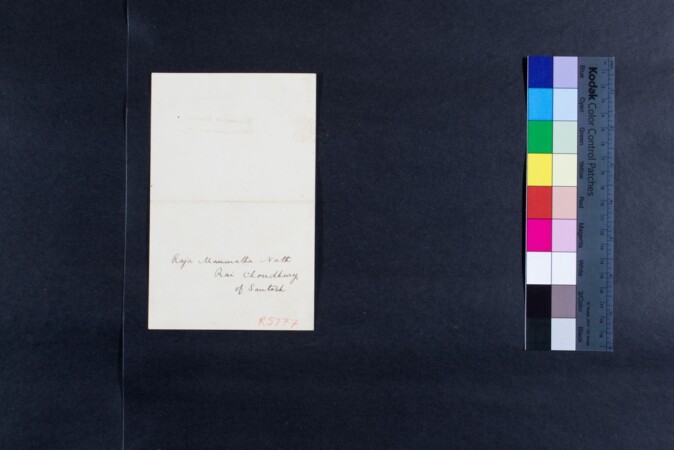 Raja Manmatha Nath
Rai Choudhury
of Santosh
R5777
Kodak Color Control Patches
Blue
Cyan
Green
Yellow
Red
Magenta
White
3/Color
Black